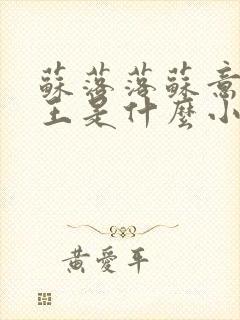 蘇落落蘇意
王是什麼小
黃愛平